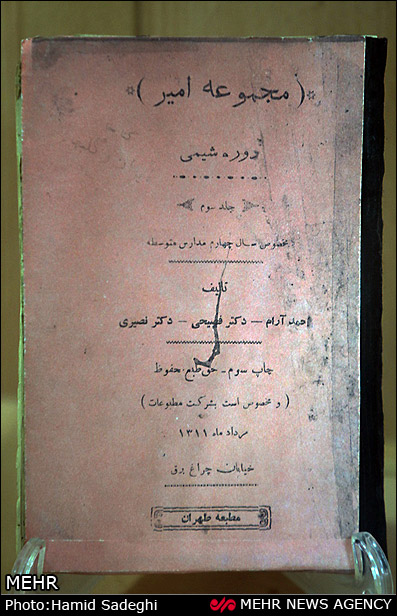 ( مجموعه امیر )
دوره شیمی
جلد سوم
مخصوص سال چهارم مدارس متوسطه
تألیف
احمد آرام — دکتر فصیحی — دکتر نصیری
چاپ سوم - حق طبع محفوظ
( و مخصوص است بشرکت مطبوعات )
مرداد ماه ۱۳۱۱
خیابان چراغ برق
مطبعه طهران
MEHR
Photo:Hamid Sadeghi
MEHR NEWS AGENCY